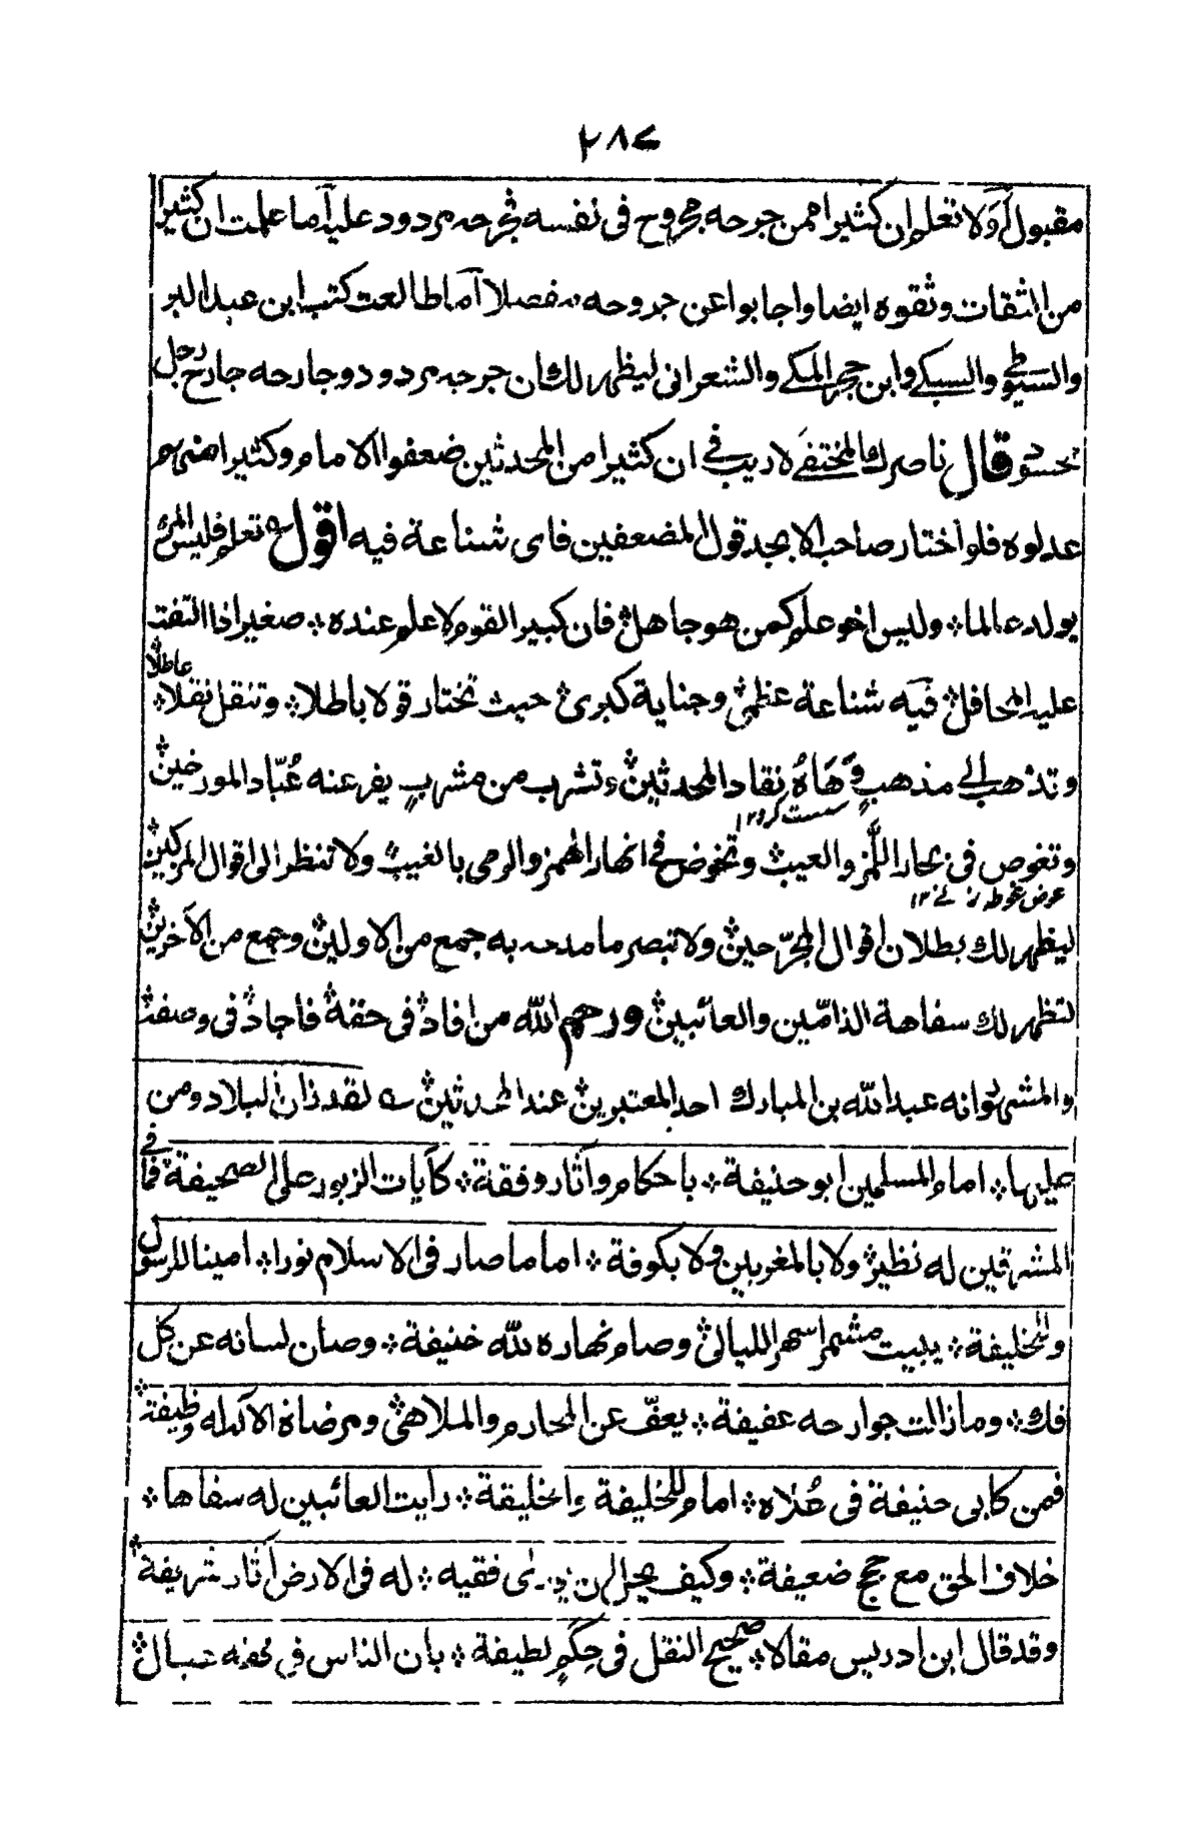 ٢٨٧
مقبول أولا تعلم ان كثيرا ممن جرحه مجروح في نفسه فجرحه مردود عليه أما علمت ان كثيرا
من الثقات وثقوه ايضا واجابوا عن جروحه مفصلا أما طالعت كتب ابن عبد البر
والسيوطي والسبكي وابن حجر المكي والشعراني ليظهر لك ان جرحه مردود وجارحه جارح رجل
حسود قال ناصرك المختفي لا ريب في ان كثيرا من المحدثين ضعفوا الامام وكثيرا منهم
عدلوه فلو اختار صاحب الابجد قول المضعفين فاى شناعة فيه اقول ؎ تعلم فليس المرء
يولد عالما ؞ وليس اخو علم كمن هو جاهل ؞ فان كبير القوم لا علم عنده ؞ صغير اذا التفت
عليه المحافل ؞ فيه شناعة عظمى ؞ وجناية كبرى ؞ حيث تختار قولا باطلا ؞ وتنقل نقلا عاطلا ؞
وتذهب الى مذهب وهاه نقاد المحدثين ؞ وتشرب من مشرب يفر عنه عباد المورخين ؞
سست كرد ١٢
وتغوص في بحار اللمز والعيب ؞ وتخوض في انهار الهمز والرمى بالغيب ؞ ولا تنظر الى اقوال المزكين ؞
غوص غوطه زنى ١٢
ليظهر لك بطلان اقوال المجرحين ؞ ولا تبصر ما مدحه به جمع من الاولين ؞ وجمع من الآخرين ؞
لتظهر لك سفاهة الذامين والعائبين ؞ ورحم الله من افاد ؞ في حقه ؞ فاجاد ؞ في وصفه ؞
والمشهور انه عبد الله بن المبارك احد المعتبرين ؞ عند المحدثين ؞ ؎ لقد زان البلاد ومن
عليها ؞ امام المسلمين ابو حنيفة ؞ باحكام وآثار وفقه ؞ كآيات الزبور على الصحيفة ؞ فما في
المشرقين له نظير ؞ ولا بالمغربين ولا بكوفة ؞ اماما صار في الاسلام نورا ؞ امينا للرسول
وللخليفة ؞ يبيت مشمرا سهر الليالى ؞ وصام نهاره لله خيفة ؞ وصان لسانه عن كل
افك ؞ وما زالت جوارحه عفيفة ؞ يعف عن المحارم والملاهى ؞ ومرضاة الاله له وظيفة ؞
فمن كابى حنيفة في علاه ؞ امام للخليفة والخليقة ؞ رايت العائبين له سفاها ؞
خلاف الحق مع حجج ضعيفة ؞ وكيف يحل ان يوذى فقيه ؞ له في الارض آثار شريفة ؞
وقد قال ابن ادريس مقالا ؞ صحيح النقل في حكم لطيفة ؞ بان الناس في فقه عيال ؞